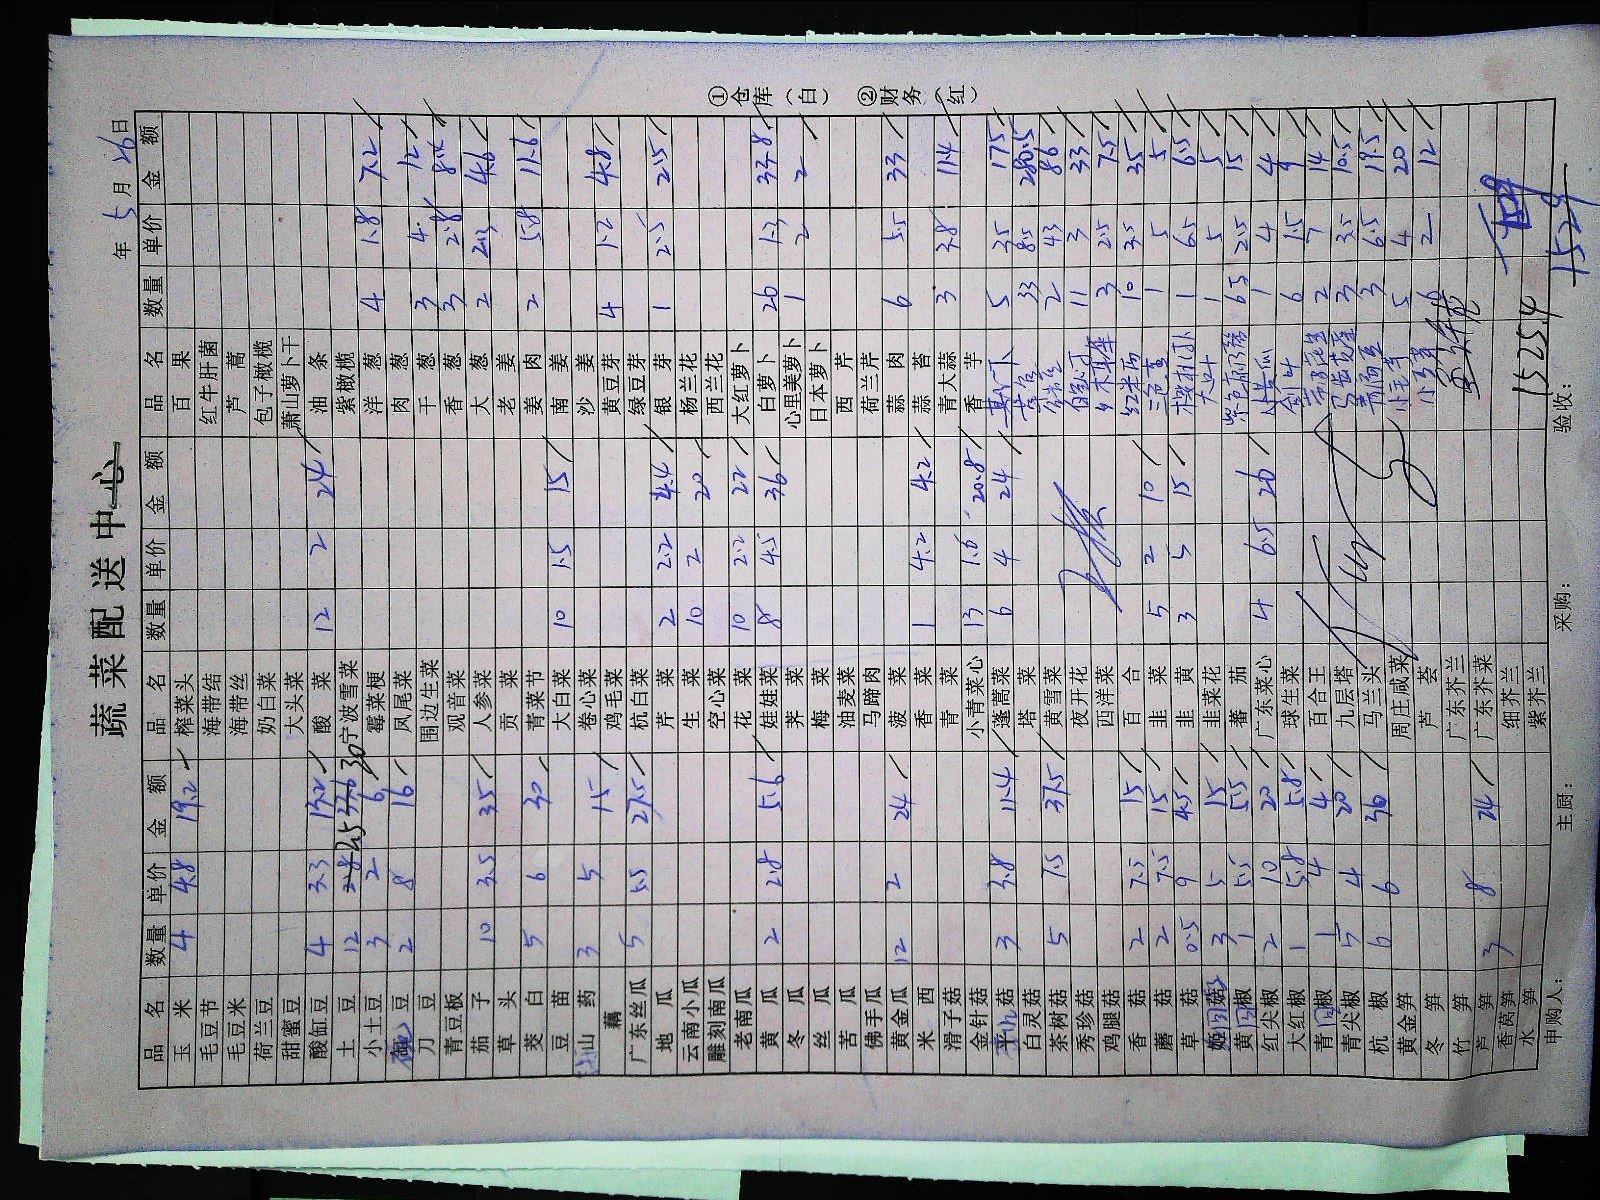 蔬菜配送中心
年 5 月 26 日
品名 数量 单价 金额
玉米 4 4.8 19.2
毛豆节
毛豆米
荷兰豆
甜蜜豆
酸缸豆 4 3.3 13.2
土豆 12 2.8 2.5 33.6 30
小土豆 3 2 6
豆 2 8 16
刀豆
青豆板
茄子 10 3.5 35
草头
茭白 5 6 30
豆苗
山药 3 5 15
藕
广东丝瓜 5 5.5 27.5
地瓜
云南小瓜
雕刻南瓜
老南瓜
黄瓜 2 2.8 5.6
冬瓜
丝瓜
苦瓜
佛手瓜
黄金瓜 12 2 24
米西
滑子菇
金针菇
菇 3 3.8 11.4
白灵菇
茶树菇 5 7.5 37.5
秀珍菇
鸡腿菇
香菇 2 7.5 15
蘑菇 2 7.5 15
草菇 0.5 9 4.5
菇 3 5 15
黄椒 1 5.5 5.5
红尖椒 2 10 20
大红椒 1 5.8 5.8
青椒 1 4 4
青尖椒 5 4 20
杭椒 6 6 36
黄金笋
冬笋
竹笋
芦笋 3 8 24
香莴笋
水笋
品名 数量 单价 金额
榨菜头
海带结
海带丝
奶白菜
大头菜
酸菜 12 2 24
宁波雪菜
霉菜梗
凤尾菜
围边生菜
观音菜
人参菜
贡菜
青菜节
大白菜 10 1.5 15
卷心菜
鸡毛菜
杭白菜
芹菜 2 2.2 4.4
生菜 10 2 20
空心菜
花菜 10 2.2 22
娃娃菜 8 4.5 36
荠菜
梅菜
油麦菜
马蹄肉
菠菜
香菜 1 4.2 4.2
青菜
小青菜心 13 1.6 20.8
蓬蒿菜 6 4 24
塔菜
黄雪菜
夜开花
西洋菜
百合
韭菜 5 2 10
韭黄 3 5 15
韭菜花
蕃茄
广东菜心 4 6.5 26
球生菜
百合王
九层塔
马兰头
周庄咸菜
芦荟
广东芥兰
广东芥菜
细芥兰
紫芥兰
品名 数量 单价 金额
百果
红牛肝菌
芦蒿
包子橄榄
萧山萝卜干
油条
紫橄榄
洋葱 4 1.8 7.2
肉葱
干葱 3 4 12
香葱 3 2.8 8.4
大葱 2 2.3 4.6
老姜
姜肉 2 5.8 11.6
南姜
沙姜
黄豆芽 4 1.2 4.8
绿豆芽
银芽 1 2.5 2.5
杨兰花
西兰花
大红萝卜
白萝卜 26 1.3 33.8
心里美萝卜 1 2 2
日本萝卜
西芹
荷兰芹
蒜肉 6 5.5 33
蒜苔
青大蒜 3 3.8 11.4
香芋
5 35 175
33 8.5 280.5
2 43 86
11 3 33
3 2.5 7.5
10 3.5 35
1 5 5
1 6.5 6.5
1 5 5
6 2.5 15
小黄瓜 1 4 4
6 1.5 9
2 7 14
3 3.5 10.5
3 6.5 19.5
5 4 20
6 2 12
1525.4
1529
申购人:
主厨:
采购:
验收:
①仓库(白) ②财务(红)